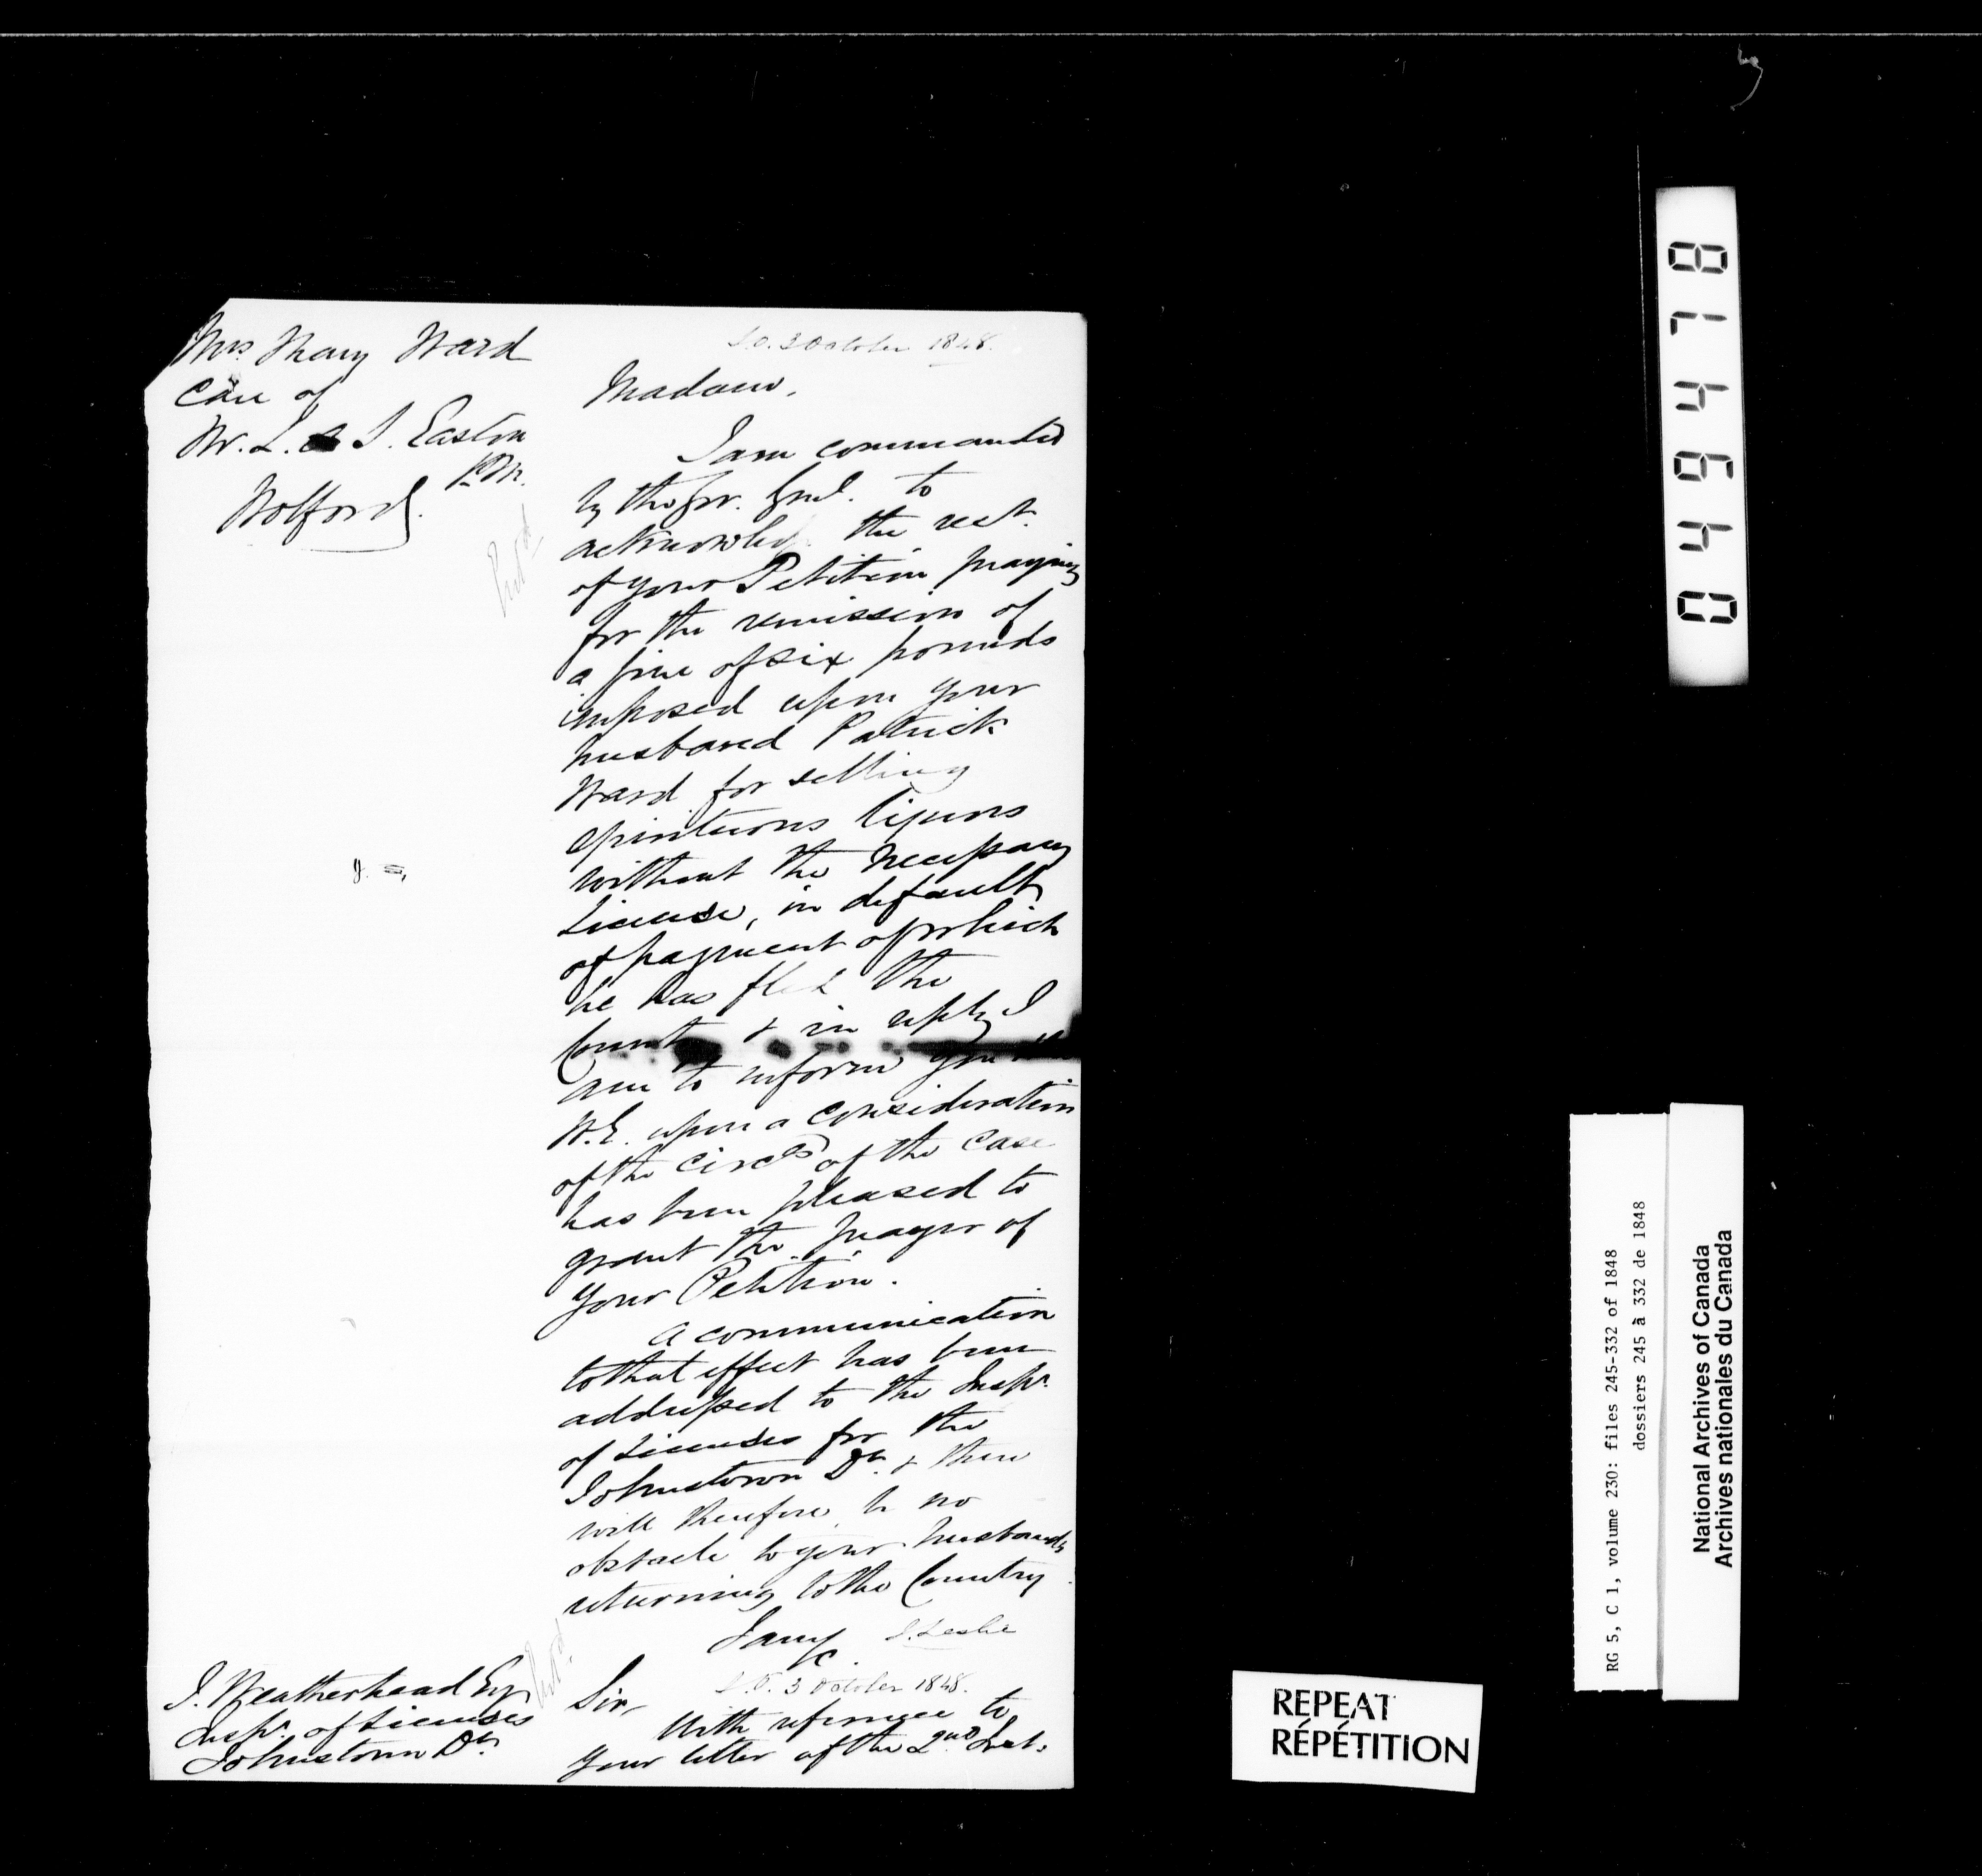 Mrs Mary Ward
Care of
Mr. L. & J. Easton
P.M.
Wolford.
Entd
S.O. 3 October 1848.
Madam,
I am commanded
by the Gov. Genl. to
acknowledge the rect.
of your Petition praying
for the remission of
a fine of six pounds
imposed upon your
husband Patrick
Ward for selling
spirituous liquors
without the necessary
License, in default
of payment of which
he has fled the
Country & in reply I
am to inform you that
H.E. upon a consideration
of the circs of the case
has been pleased to
grant the prayer of
your Petition.
A communication
to that effect has been
addressed to the Inspr.
of Licenses for the
Johnstown Dt. & there
will therefore be no
obstacle to your husbands
returning to the Country.
I am &c
J. Leslie
Entd.
J. Weatherhead Esq
Inspr. of Licenses
Johnstown Dt.
S.O. 3 October 1848.
Sir,
With reference to
your letter of the 2nd Inst.
874640
RG 5, C 1, volume 230: files 245-332 of 1848
dossiers 245 à 332 de 1848
National Archives of Canada
Archives nationales du Canada
REPEAT
RÉPÉTITION